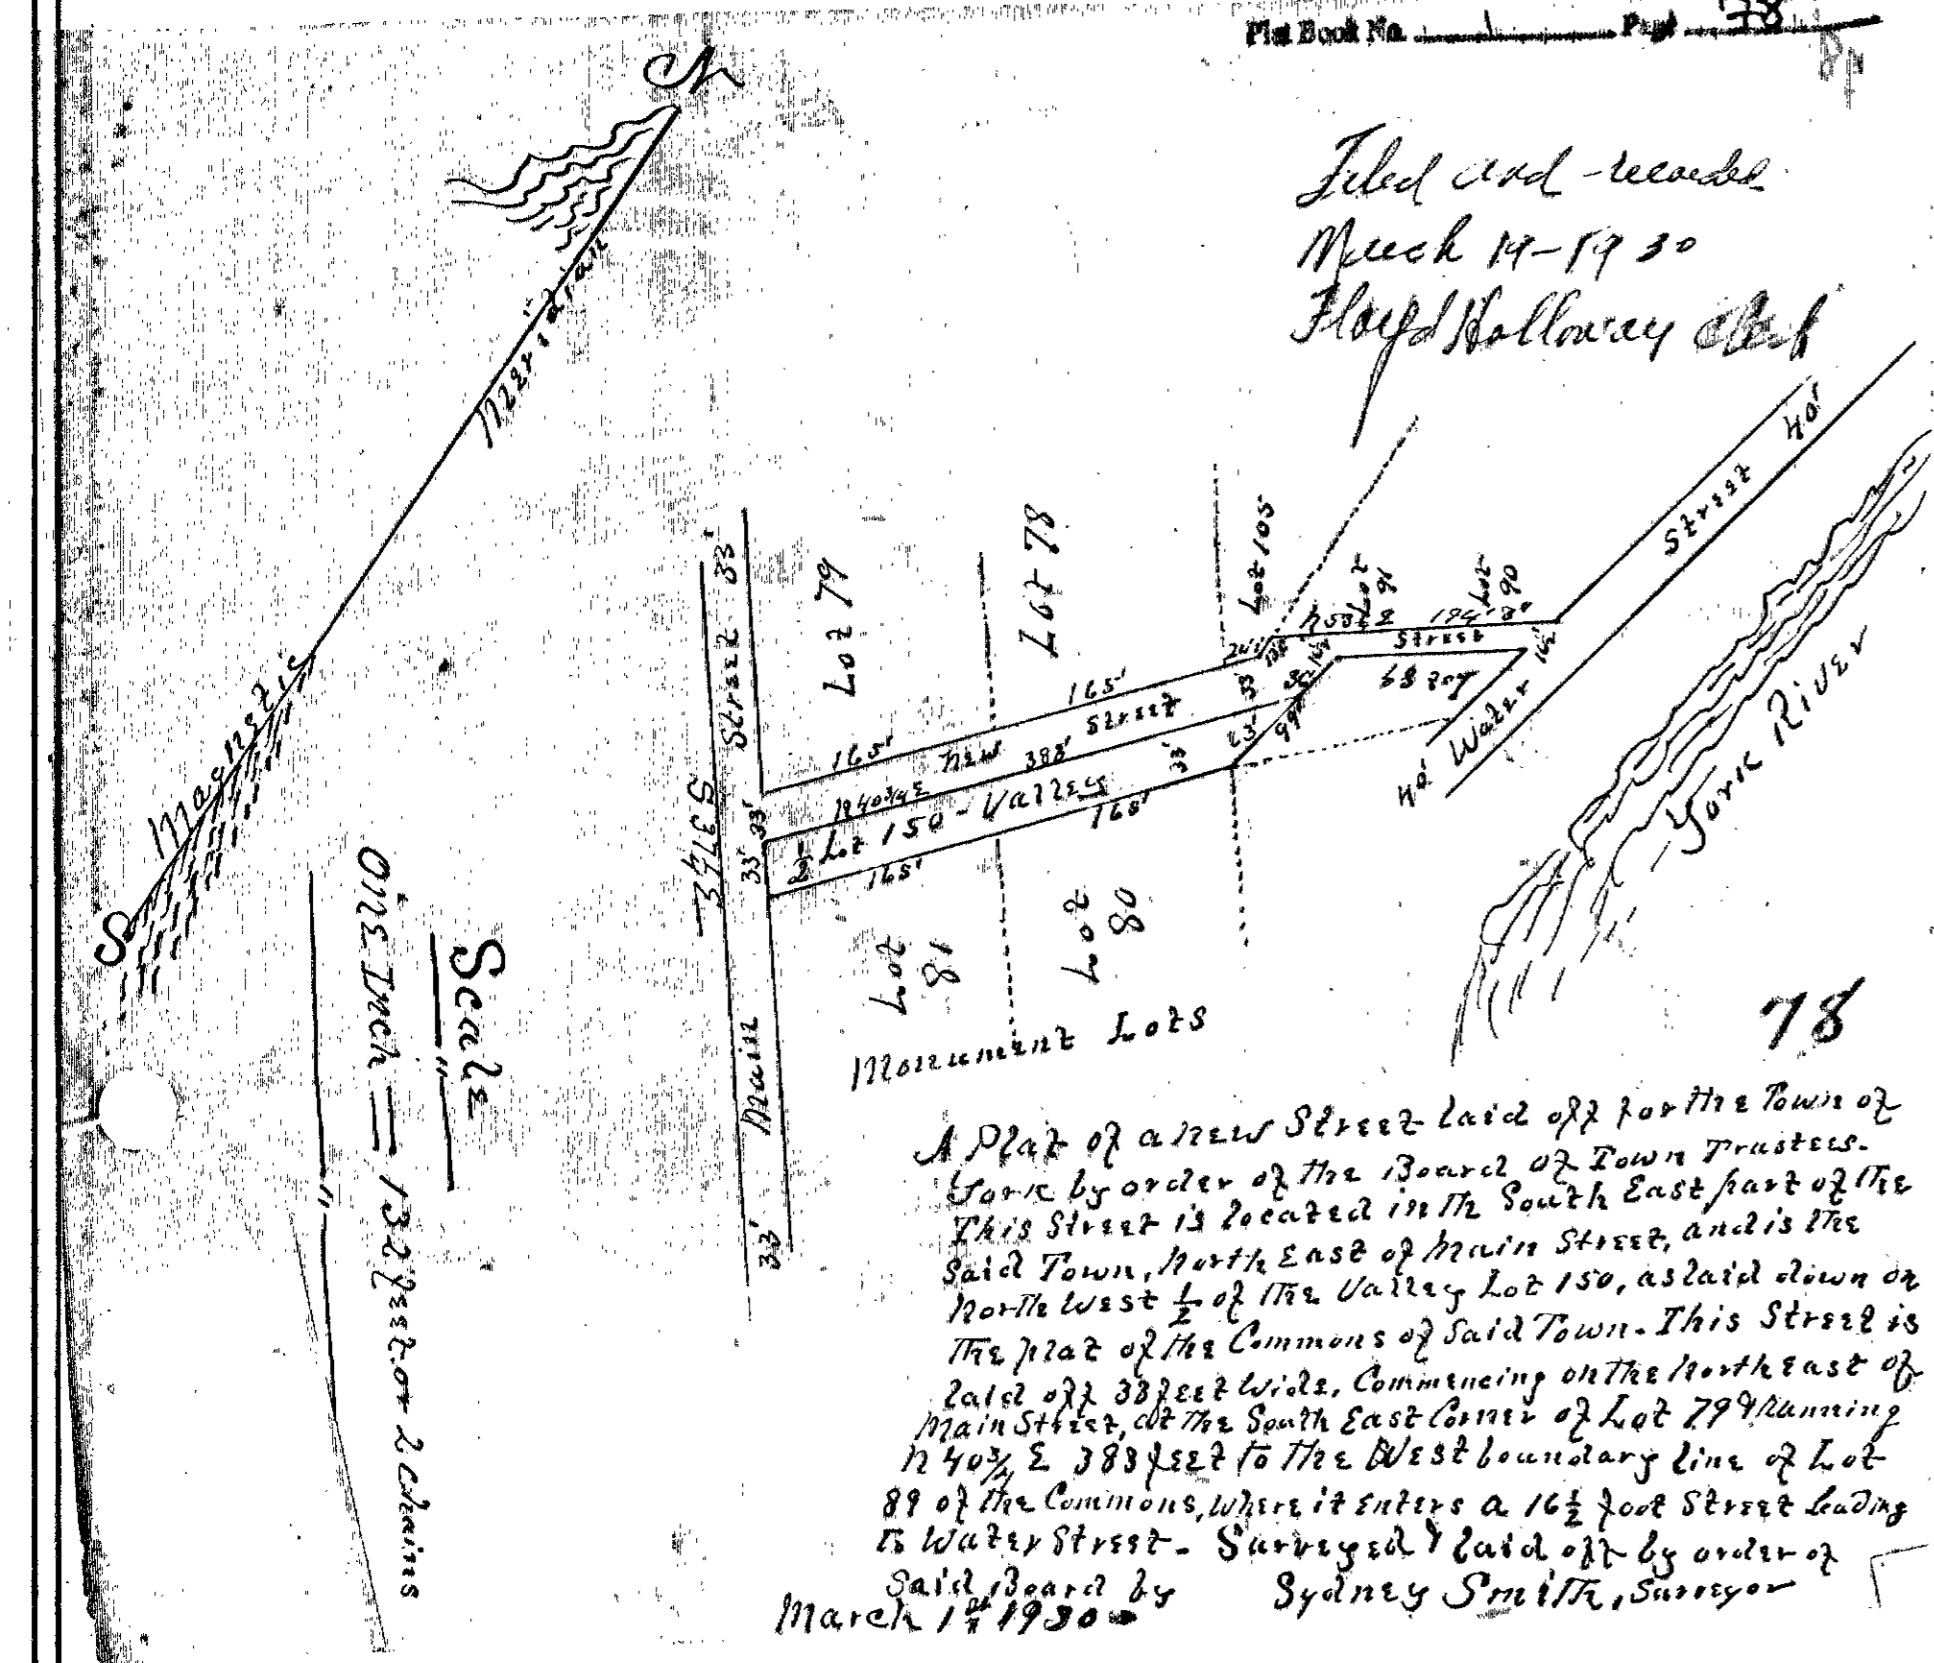 Plat Book No. 1 Page 78
Filed and recorded
March 19-1930
Floyd Holloway Clerk
N
Magnetic Meridian
S
Scale
One Inch = 132 feet or 2 Chains
Street 33'
S 37¼ E
Main
33'
33'
33'
Lot 79
Lot 78
Lot 105
Lot 91
Lot 90
165'
165'
New Street
N 40¾ E 383'
½ Lot 150 - Valley
165'
165'
33'
33
99'
Street
194' 8"
16½'
Lot 89
40' Water Street 40'
York River
Lot 81
Lot 80
Monument Lots
78
A Plat of a new Street laid off for the Town of
York by order of the Board of Town Trustees.
This Street is located in the South East part of the
Said Town, North East of Main Street, and is the
North West ½ of the Valley Lot 150, as laid down on
the plat of the Commons of Said Town. This Street is
laid off 33 feet wide, Commencing on the North east of
Main Street, at the South East Corner of Lot 79 & Running
N 40¾ E 383 feet to the West boundary line of Lot
89 of the Commons, where it enters a 16½ foot Street leading
to Water Street. Surveyed & laid off by order of
Said Board by Sydney Smith, Surveyor
March 1st 1930